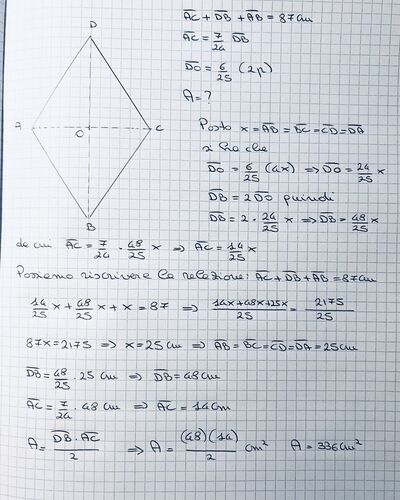 D
A
O
C
B
AC + DB + AB = 87cm
AC = 7/24 DB
DO = 6/25 (2p)
A = ?
Posto x = AB = BC = CD = DA
si ha che
DO = 6/25 (4x) ⇒ DO = 24/25 x
DB = 2DO quindi
DB = 2 · 24/25 x ⇒ DB = 48/25 x
da cui AC = 7/24 · 48/25 x ⇒ AC = 14/25 x
Possiamo riscrivere la relazione: AC + DB + AB = 87cm
14/25 x + 48/25 x + x = 87 ⇒ 14x+48x+25x/25 = 2175/25
87x = 2175 ⇒ x = 25cm ⇒ AB = BC = CD = DA = 25cm
DB = 48/25 · 25cm ⇒ DB = 48cm
AC = 7/24 · 48cm ⇒ AC = 14cm
A = DB · AC/2 ⇒ A = (48)(14)/2 cm² A = 336cm²